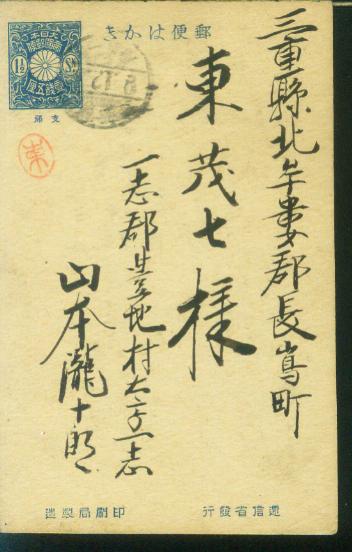 郵便はかき
大日本
帝國郵便
1½ Sn.
壹錢五厘
支那
三重縣北牟婁郡長嶌町
東茂七様
一志郡豊地村大字一志
山本瀧十郎
東
遞信省發行
印刷局製造